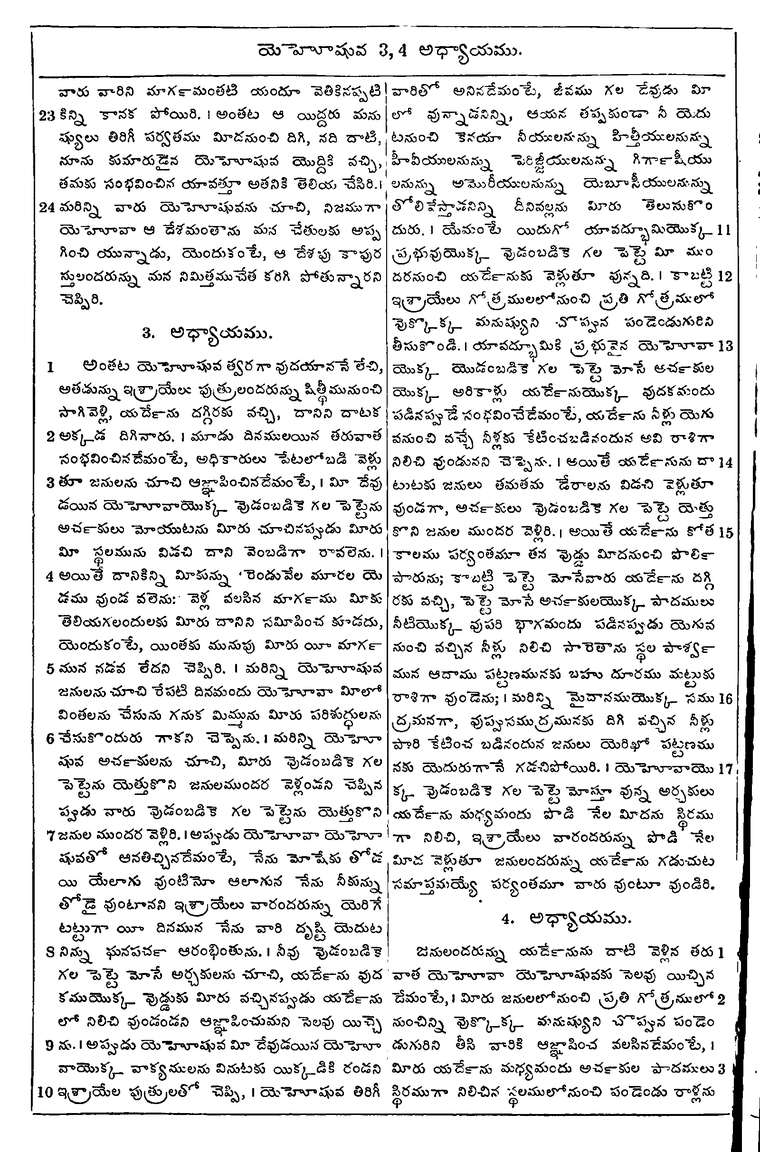 యెహోషువ 3, 4 అధ్యాయము.
వారు వారిని మార్గమంతటి యందూ వెతికినప్పటి
23 కిన్ని కానక పోయిరి. । అంతట ఆ యిద్దరు మను
ష్యులు తిరిగీ పర్వతము మీదనుంచి దిగి, నది దాటి,
నూను కుమారుడైన యెహోషువ యొద్దికి వచ్చి,
తమకు సంభవించిన యావత్తూ అతనికి తెలియ చేసిరి. ।
24 మరిన్ని వారు యెహోషువను చూచి, నిజముగా
యెహోవా ఆ దేశమంతాను మన చేతులకు అప్ప
గించి యున్నాడు, యెందుకంటే, ఆ దేశపు కాపుర
స్తులందరున్ను మన నిమిత్తముచేత కరిగి పోతున్నారని
చెప్పిరి.
3. అధ్యాయము.
1 అంతట యెహోషువ త్వరగా వుదయాననే లేచి,
అతడున్ను ఇశ్రాయేలు పుత్రులందరున్ను షిత్థీమునుంచి
సాగివెళ్లి, యర్దేను దగ్గిరకు వచ్చి, దానిని దాటక
2 అక్కడ దిగినారు. । మూడు దినములయిన తరువాత
సంభవించినదేమంటే, అధికారులు పేటలోబడి వెళ్లు
3 తూ జనులను చూచి ఆజ్ఞాపించినదేమంటే, । మీ దేవు
డయిన యెహోవాయొక్క వుడంబడికె గల పెట్టెను
అర్చకులు మోయుటను మీరు చూచినప్పుడు మీరు
మీ స్థలమును విడచి దాని వెంబడిగా రావలెను. ।
4 అయితే దానికిన్ని మీకున్ను రెండువేల మూరల యె
డము వుండ వలెను: వెళ్ల వలసిన మార్గము మీకు
తెలియగలందులకు మీరు దానిని సమీపించ కూడదు,
యెందుకంటే, యింతకు మునుపు మీరు యీ మార్గ
5 మున నడవ లేదని చెప్పిరి. । మరిన్ని యెహోషువ
జనులను చూచి రేపటి దినమందు యెహోవా మీలో
వింతలను చేసును గనుక మిమ్మును మీరు పరిశుర్ధులను
6 చేసుకొందురు గాకని చెప్పెను. । మరిన్ని యెహో
షువ అర్చకులను చూచి, మీరు వుడంబడికె గల
పెట్టెను యెత్తుకొని జనులముందర వెళ్లండని చెప్పిన
ప్పుడు వారు వుడంబడికె గల పెట్టెను యెత్తుకొని
7 జనుల ముందర వెళ్లిరి. । అప్పుడు యెహోవా యెహో
షువతో ఆనతిచ్చినదేమంటే, నేను మోషేకు తోడ
యి యేలాగు వుంటిమో ఆలాగున నేను నీకున్ను
తోడై వుంటానని ఇశ్రాయేలు వారందరున్ను యెరిగే
టట్టుగా యీ దినమున నేను వారి దృష్టి యెదుట
8 నిన్ను ఘనపర్చ ఆరంభింతును. । నీవు వుడంబడికె
గల పెట్టె మోసే అర్చకులను చూచి, యర్దేను వుద
కముయొక్క వుడ్డుకు మీరు వచ్చినప్పుడు యర్దేను
లో నిలిచి వుండండని ఆజ్ఞాపించుమని సెలవు యిచ్చె
9 ను. । అప్పుడు యెహోషువ మీ దేవుడయిన యెహో
వాయొక్క వాక్యములను వినుటకు యిక్కడికి రండని
10 ఇశ్రాయేల పుత్రులతో చెప్పి, । యెహోషువ తిరిగీ
వారితో అనినదేమంటే, జీవము గల దేవుడు మీ
లో వున్నాడనిన్ని, ఆయన తప్పకుండా నీ యెదు
టనుంచి కెనయా నీయులనున్ను హిత్తీయులనున్ను
హీవీయులనున్ను పెరిజ్జీయులనున్ను గిర్గాషీయు
లనున్ను అమోరీయులనున్ను యెబూసీయులనున్ను
తోలివేస్తాడనిన్ని దీనివల్లను మీరు తెలుసుకొం
దురు. । యేమంటే యిదుగో యావద్భూమియొక్క 11
ప్రభువుయొక్క వుడంబడికె గల పెట్టె మీ ముం
దరనుంచి యర్దేనుకు వెళ్లుతూ వున్నది. । కాబట్టి 12
ఇశ్రాయేలు గోత్రములలోనుంచి ప్రతి గోత్రములో
వొక్కొక్క మనుష్యుని చొప్పున పండెండుగురిని
తీసుకొండి. । యావద్భూమికె ప్రభువైన యెహోవా 13
యొక్క యొడంబడికె గల పెట్టె మోసే అర్చకుల
యొక్క అరికాళ్లు యర్దేనుయొక్క వుదకమందు
పడినప్పుడే సంభవించేదేమంటే, యర్దేను నీళ్లు యెగు
వనుంచి వచ్చే నీళ్లకు కేటించబడినందున అవి రాశిగా
నిలిచి వుండునని చెప్పెను. । అయితే యర్దేనును దా 14
టుటకు జనులు తమతమ డేరాలను విడచి వెళ్లుతూ
వుండగా, అర్చకులు వుడంబడికె గల పెట్టె యెత్తు
కొని జనుల ముందర వెళ్లిరి. । అయితే యర్దేను కోత 15
కాలము పర్యంతమూ తన వుడ్డు మీదనుంచి పొర్లి
పారును; కాబట్టి పెట్టె మోసేవారు యర్దేను దగ్గి
రకు వచ్చి, పెట్టె మోసే అర్చకులయొక్క పాదములు
నీటియొక్క వుపరి భాగమందు పడినప్పుడు యెగువ
నుంచి వచ్చిన నీళ్లు నిలిచి సారెతాను స్థల పార్శ్వ
మున ఆదాము పట్టణమునకు బహు దూరము మట్టుకు
రాశిగా వుండెను; । మరిన్ని మైదానముయొక్క సము 16
ద్రమనగా, వుప్పుసముద్రమునకు దిగి వచ్చిన నీళ్లు
పారి కేటించ బడినందున జనులు యెరిఖో పట్టణము
నకు యెదురుగానే గడచిపోయిరి. । యెహోవాయొ 17
క్క వుడంబడికె గల పెట్టె మోస్తూ వున్న అర్చకులు
యర్దేను మధ్యమందు పొడి నేల మీదను స్థిరము
గా నిలిచి, ఇశ్రాయేలు వారందరున్ను పొడి నేల
మీద వెళ్లుతూ జనులందరున్ను యర్దేను గడుచుట
సమాప్తమయ్యే పర్యంతమూ వారు వుంటూ వుండిరి.
4. అధ్యాయము.
జనులందరున్ను యర్దేనును దాటి వెళ్లిన తరు 1
వాత యెహోవా యెహోషువకు సెలవు యిచ్చిన
దేమంటే, । మీరు జనులలోనుంచి ప్రతి గోత్రములో 2
నుంచిన్ని వొక్కొక్క మనుష్యుని చొప్పున పండెం
డుగురిని తీసి వారికి ఆజ్ఞాపించ వలసినదేమంటే, ।
మీరు యర్దేను మధ్యమందు అర్చకుల పాదములు 3
స్థిరముగా నిలిచిన స్థలములోనుంచి పండెండు రాళ్లను